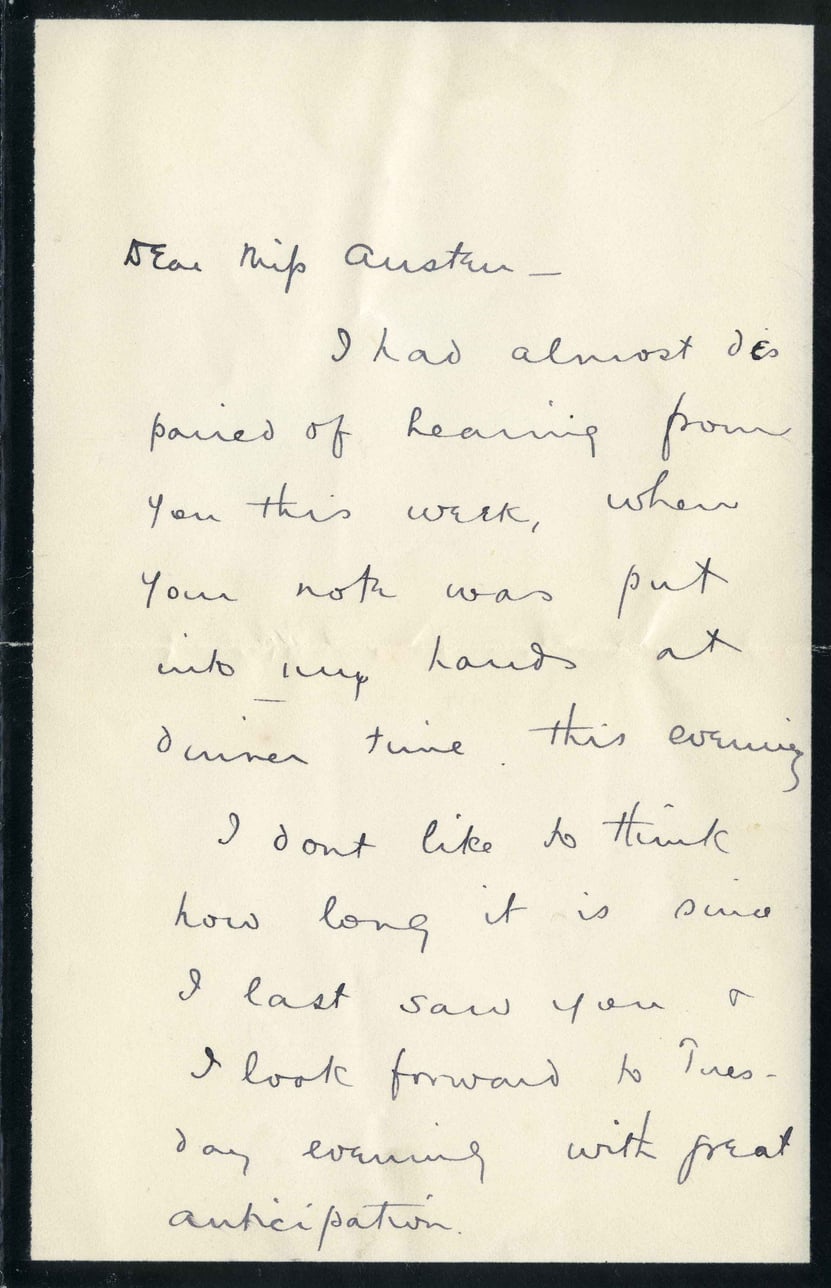 Dear Miss Austen —
I had almost des
paired of hearing from
you this week, when
your note was put
into my hands at
dinner time this evening
I dont like to think
how long it is since
I last saw you &
I look forward to Tues-
day evening with great
anticipation.